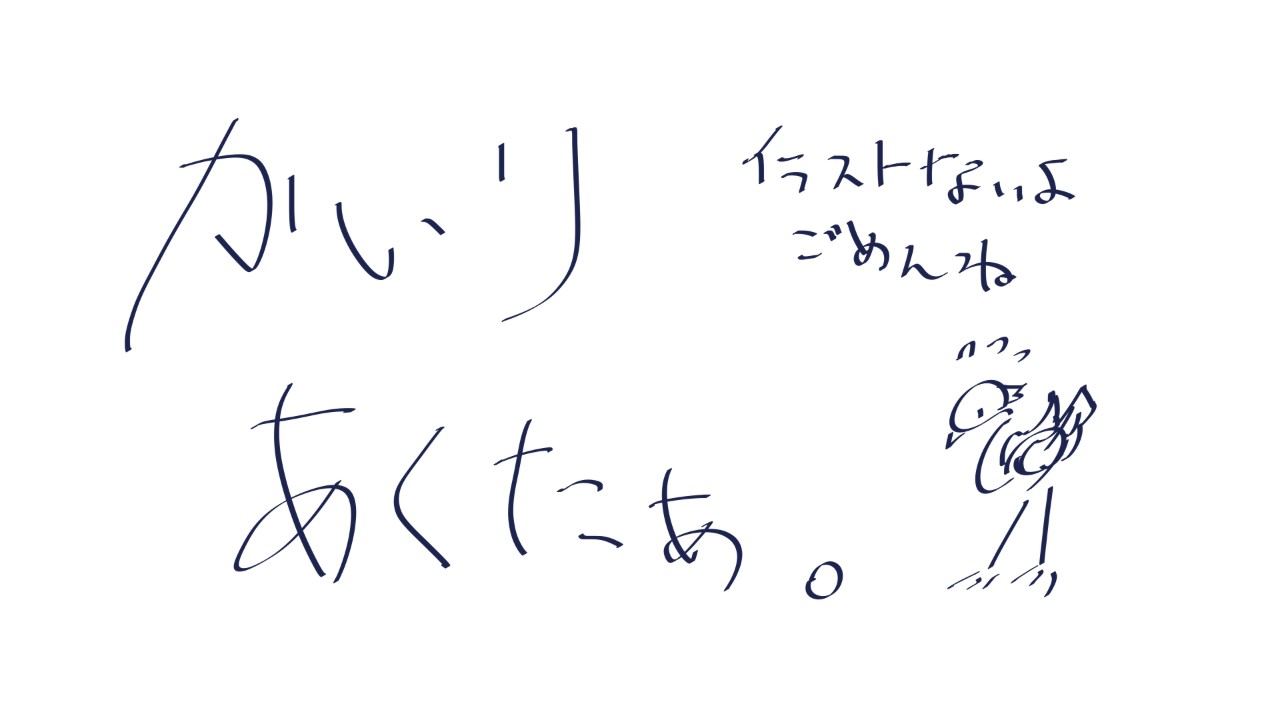 かいり
あくたぁ。
イラストないよ
ごめんね